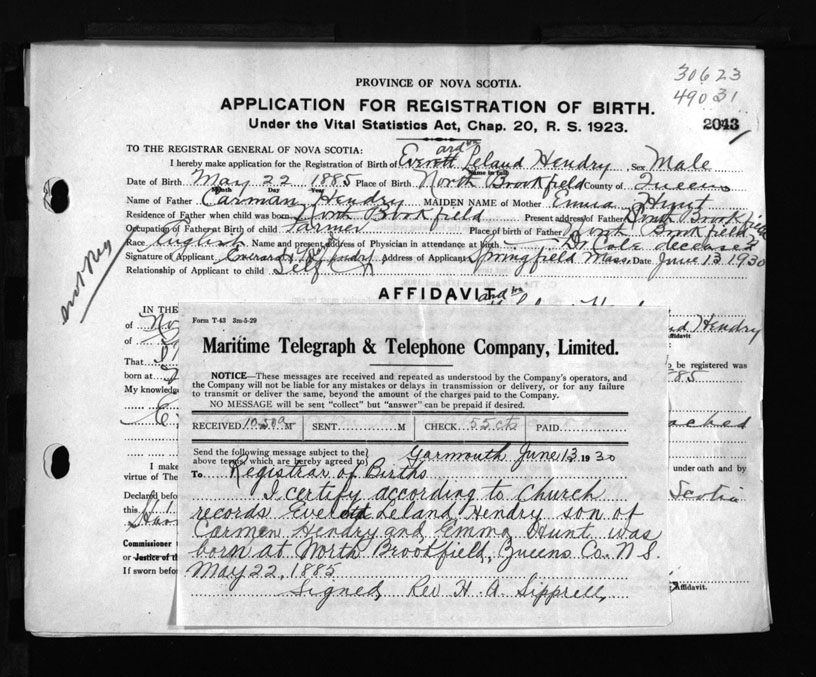 30623
49031
PROVINCE OF NOVA SCOTIA.
APPLICATION FOR REGISTRATION OF BIRTH.
2043
Under the Vital Statistics Act, Chap. 20, R. S. 1923.
TO THE REGISTRAR GENERAL OF NOVA SCOTIA:
I hereby make application for the Registration of Birth of Everett ard Leland Hendry Sex Male
Name in full
Date of Birth May 22 1885 Place of Birth North Brookfield County of Queens
Month Day Year
Name of Father Carman Hendry MAIDEN NAME of Mother Emma Hunt
Residence of Father when child was born North Brookfield Present address of Father North Brookfield
Occupation of Father at Birth of child Farmer Place of birth of Father North Brookfield
Race English Name and present address of Physician in attendance at birth Dr. Cole deceased
Signature of Applicant Everard L Hendry Address of Applicant Springfield Mass. Date June 13 1930
Relationship of Applicant to child Self
not Reg
AFFIDAVIT
IN THE
of No
and Hendry
of
That
to be registered was
born at
85
My knowledge
ached
I make
under oath and by
virtue of The
Declared before
Scotia
this
Commissioner
or Justice of the
If sworn before
Affidavit.
Form T-43 3m-5-29
Maritime Telegraph & Telephone Company, Limited.
NOTICE—These messages are received and repeated as understood by the Company's operators, and
the Company will not be liable for any mistakes or delays in transmission or delivery, or for any failure
to transmit or deliver the same, beyond the amount of the charges paid to the Company.
NO MESSAGE will be sent "collect" but "answer" can be prepaid if desired.
RECEIVED 10.50a M SENT M CHECK 55cts PAID
Send the following message subject to the
above terms, which are hereby agreed to } Yarmouth June 13 1930
To Registrar of Births
I certify according to Church
records Everett Leland Hendry son of
Carmen Hendry and Emma Hunt was
born at North Brookfield, Queens Co. N S.
May 22, 1885
Signed, Rev H. A. Sipprell,